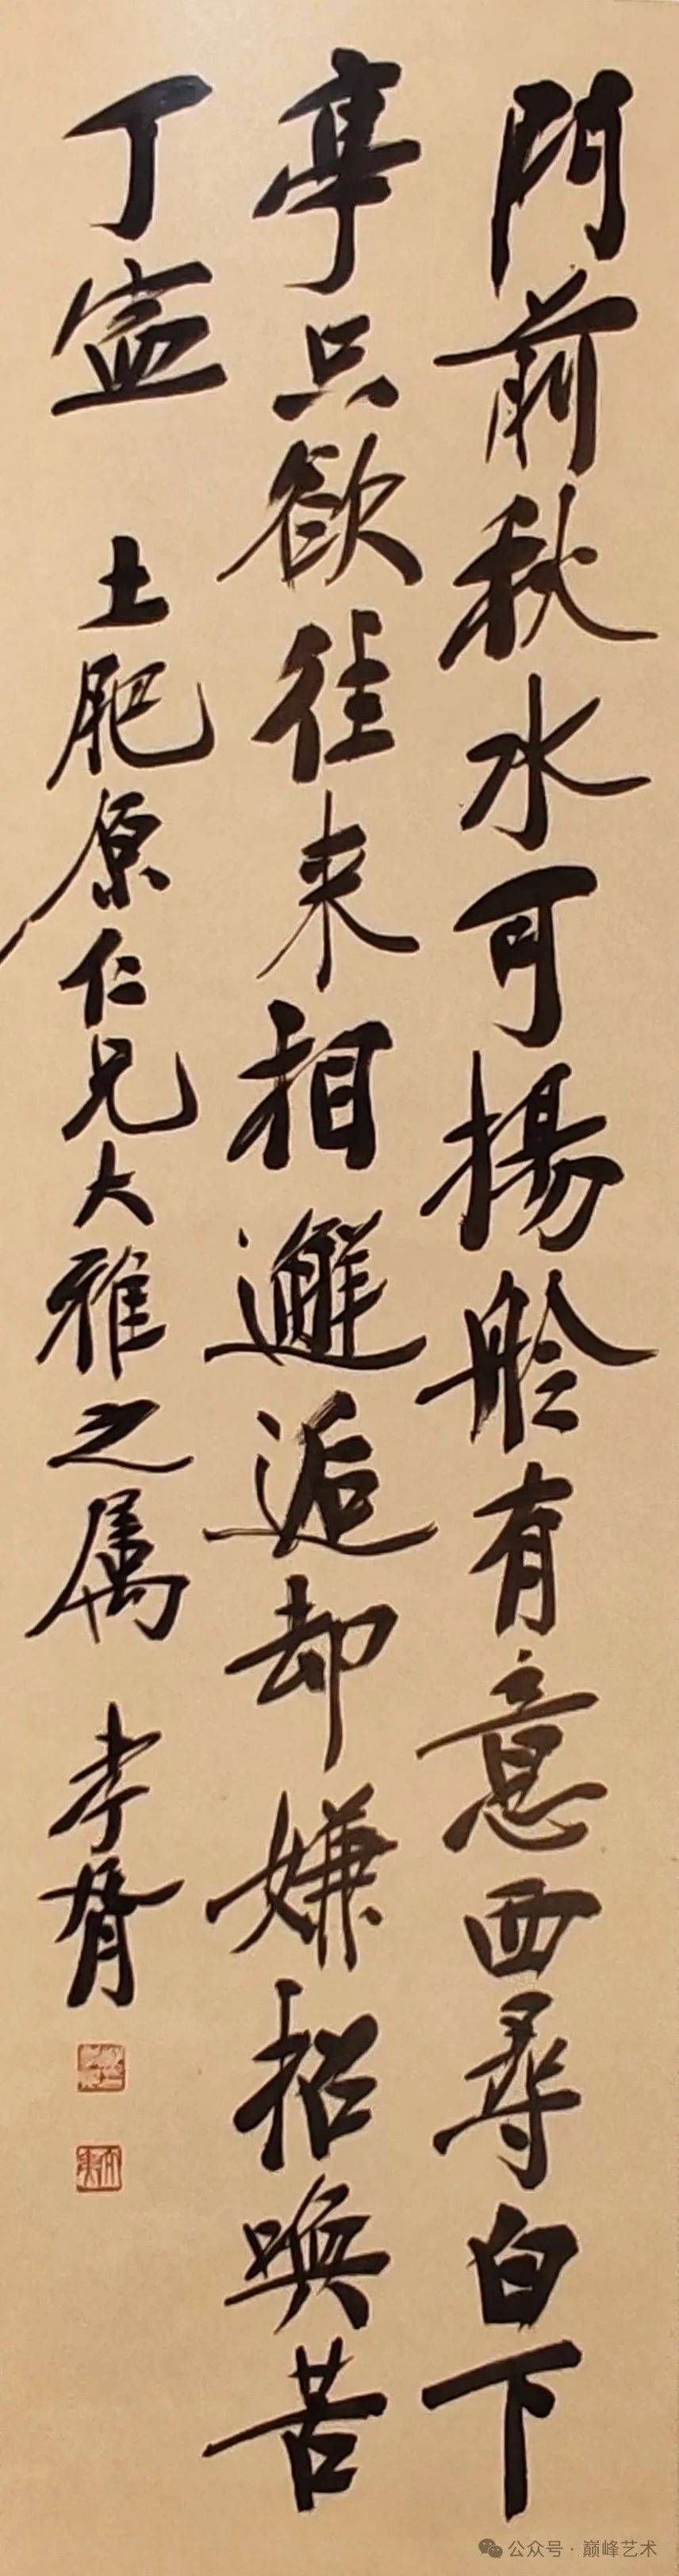 門前秋水可揚舲有意西尋白下
亭只欲往来相邂逅却嫌招喚苦
丁寍
土肥原仁兄大雅之属
孝胥
公众号·巅峰艺术